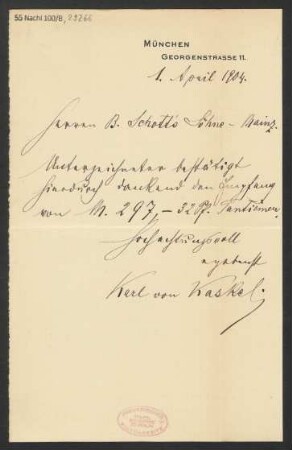 55 Nachl 100/B,
MÜNCHEN
GEORGENSTRASSE 11.
1. April 1904.
Herren B. Schott's Söhne – Mainz.
Unterzeichneter bestätigt
hierdurch dankend den Empfang
von M. 297,– 32 Pf. Tantiemen.
Hochachtungsvoll
ergebenst
Karl von Kaskel.